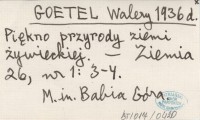 GOETEL Walery 1936 d.
Piękno przyrody ziemi
żywieckiej. — Ziemia
26, nr 1: 3-4.
M. in. Babia Góra